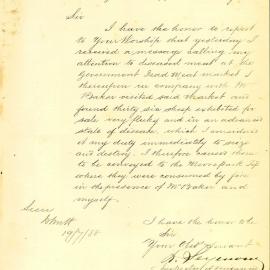 Sir
I have the honor to report
to Your Worship that yesterday I
received a message calling my
attention to diseased meat at the
Government Dead Meat market I
therefore in company with Mr
Baker visited said Market and
found thirty six sheep exhibited for
sale very fluky and in an advanced
state of disease, which I considered
it my duty immediately to seize
and destroy. I therefore caused them
to be conveyed to the Moore park Tip
where they were consumed by fire
in the presence of Mr Baker and
myself.
I have the honor to be
Sir
Your Obt Servant
R. Seymour
19/7/88